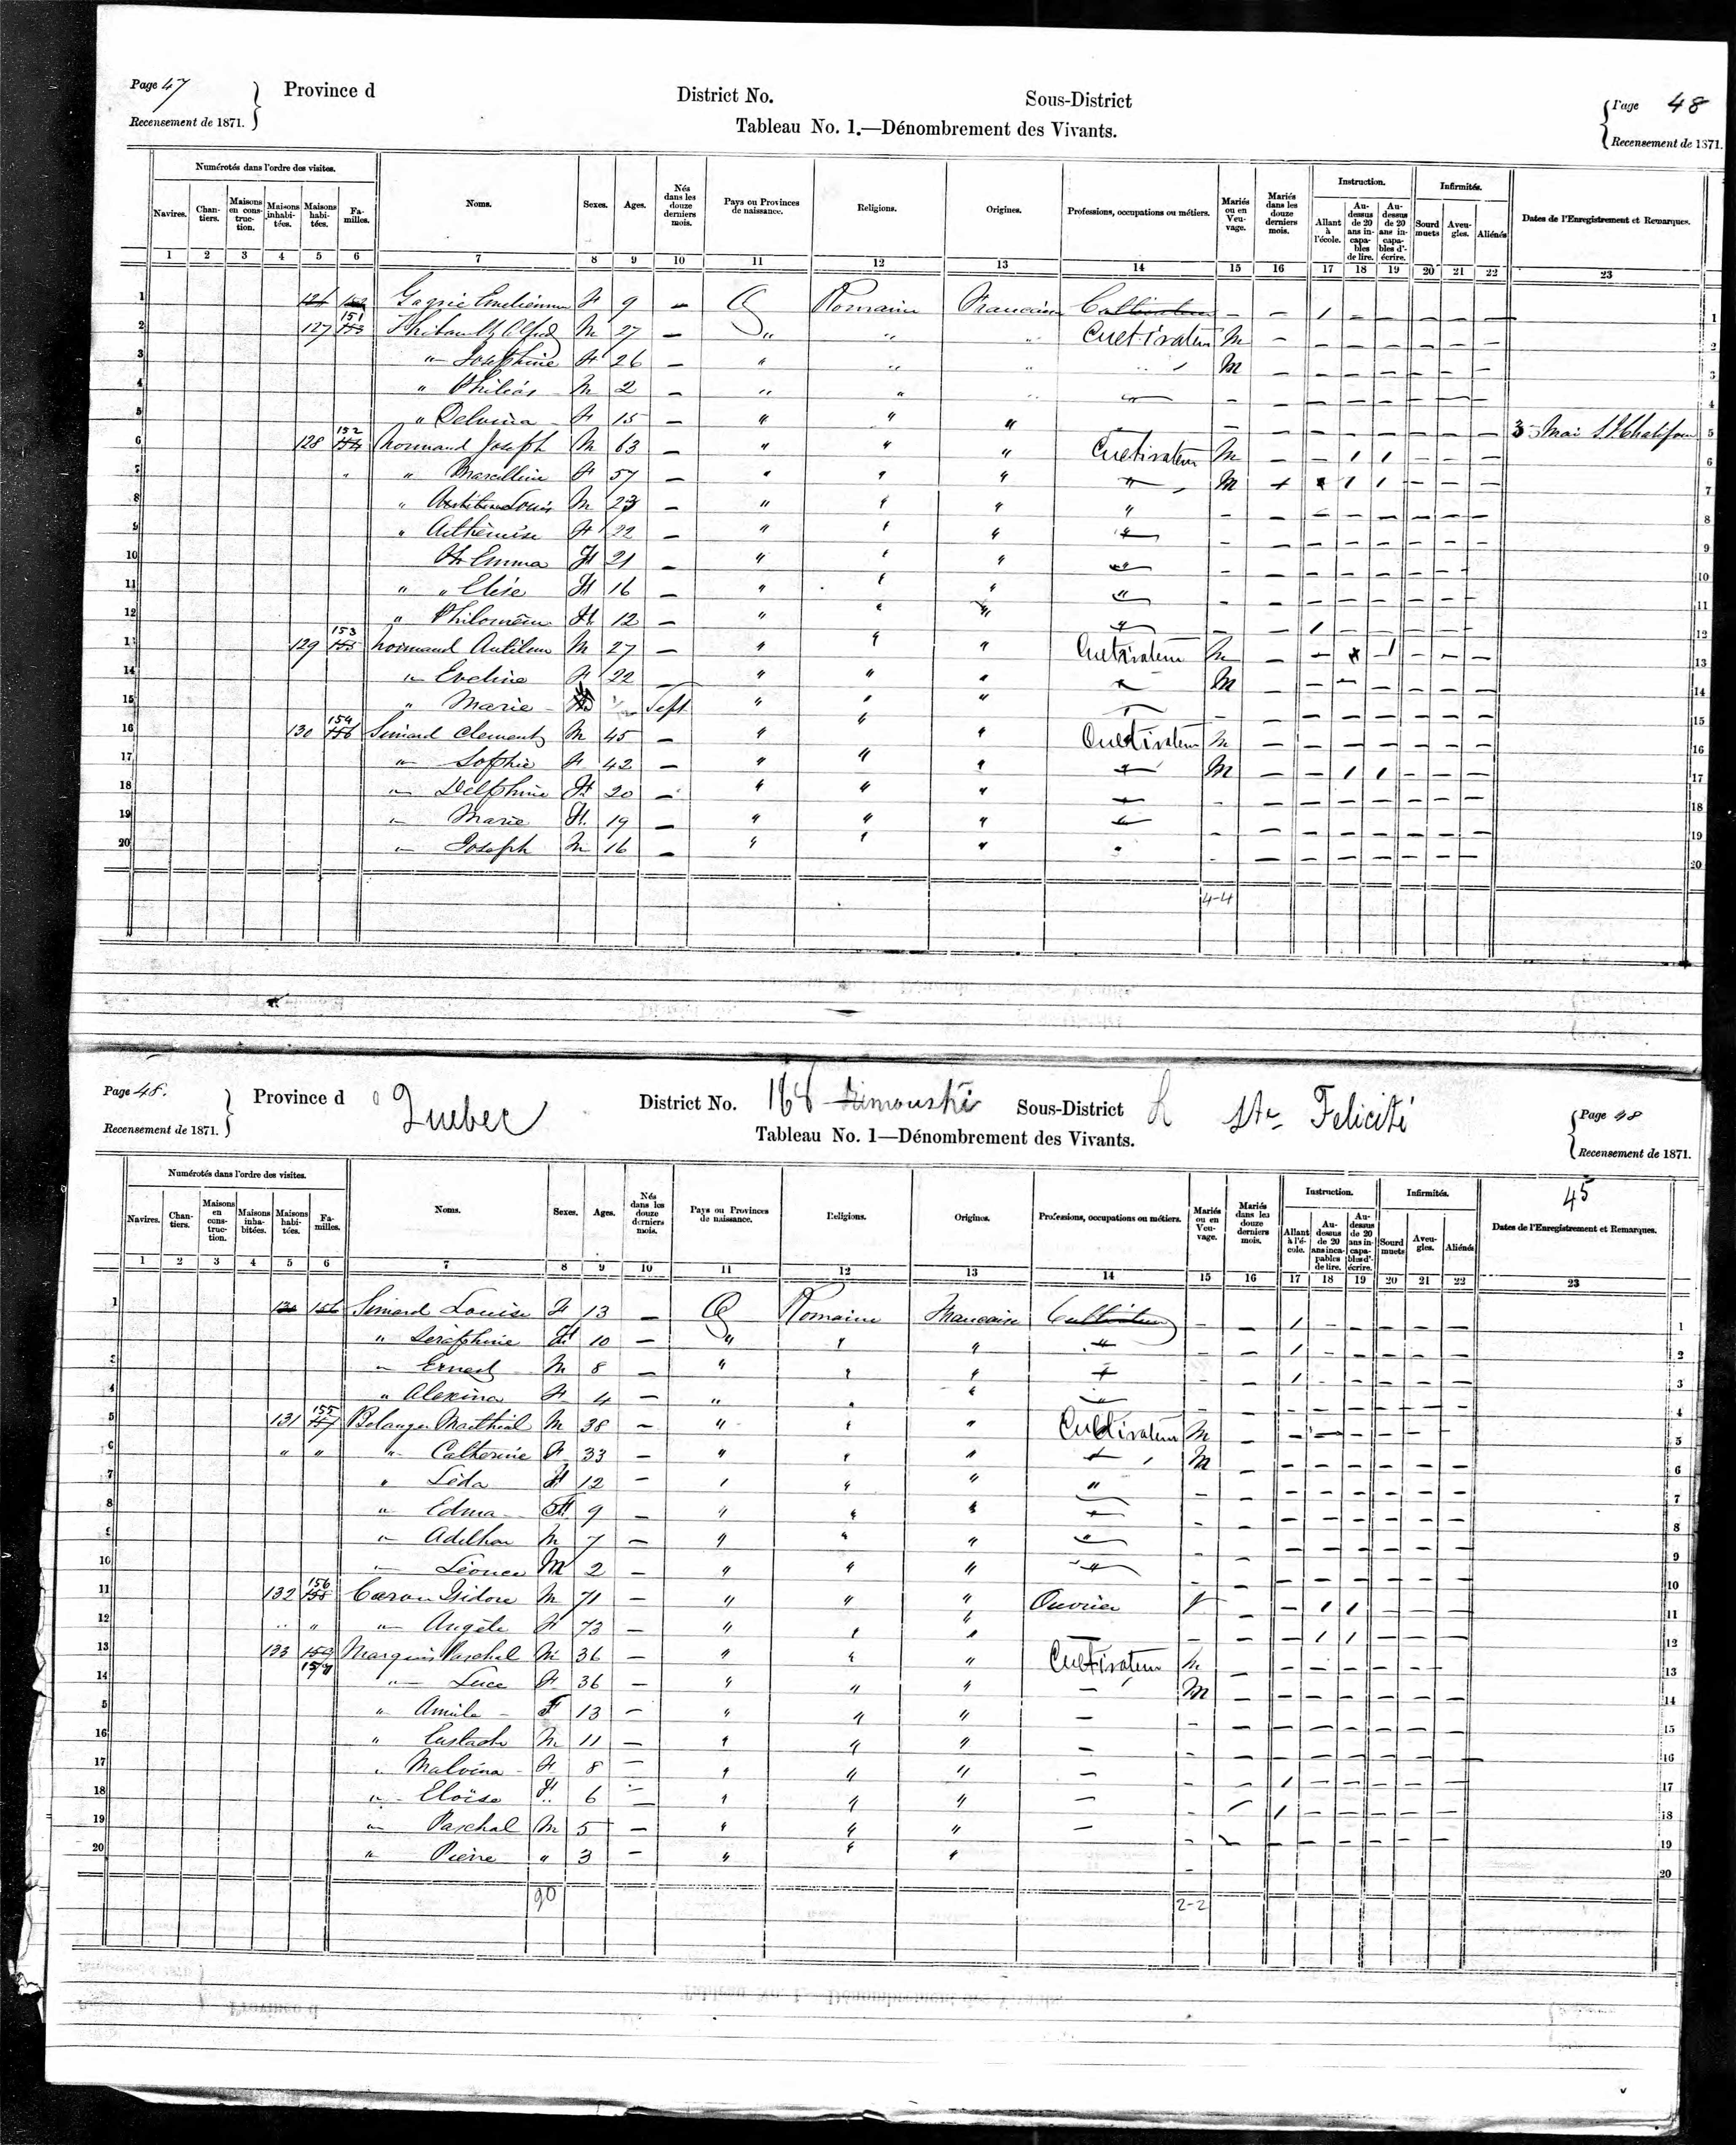 Page 47 Province d District No. Sous-District Page 48
Recensement de 1871. Tableau No. 1.—Dénombrement des Vivants. Recensement de 1871.
Numérotés dans l'ordre des visites. Noms. Sexes. Ages. Nés dans les douze derniers mois. Pays ou Provinces de naissance. Religions. Origines. Professions, occupations ou métiers. Mariés ou en Veu-vage. Mariés dans les douze derniers mois. Instruction. Infirmités. Dates de l'Enregistrement et Remarques.
Navires. Chan-tiers. Maisons en cons-truc-tion. Maisons inhabi-tées. Maisons habi-tées. Fa-milles. Allant à l'école. Au-dessus de 20 ans in-capa-bles de lire. Au-dessus de 20 ans in-capa-bles d'-écrire. Sourd muets Aveu-gles. Aliénés
1 2 3 4 5 6 7 8 9 10 11 12 13 14 15 16 17 18 19 20 21 22 23
1 F 9 — Q Romaine Francaise Cultivateur - - 1 - - - - - 1
2 127 151 M 27 — " " " Cultivateur M - - - - - - - 2
3 " Josephine F 26 — " " " " M - - - - - - - 3
4 " M 2 — " " " " - - - - - - - - 4
5 " Delvina F 15 — " " " - - - - - - - - 3 Mai 5
6 128 152 Normand Joseph M 63 — " " " Cultivateur M - - 1 1 - - - 6
" Marcelline F 57 — " " " " M 1 1 - - - 7
8 " Louis M 23 — " " " " - - - - - - - - 8
9 " F 22 — " " " " - - - - - - - - 9
10 Emma F 21 — " " " " - - - - - - - - 10
11 " " Elise F 16 — " " " " - - - - - - - - 11
12 " F 12 — " " " " - - 1 - - - - - 12
13 129 153 Normand M 27 — " " " Cultivateur M - - 1 - - - 13
14 " Eveline F 22 — " " " " M - - - - - - - 14
15 " Marie Sept " " " - - - - - - - - 15
16 130 154 Simard Clement M 45 — " " " Cultivateur M - - - - - - - 16
17 " Sophie F 42 — " " " " M - - 1 1 - - - 17
18 " Delphine F 20 — " " " " - - - - - - - - 18
19 " Marie F 19 — " " " " - - - - - - - - 19
20 " Joseph M 16 — " " " " - - - - - - - - 20
4-4
Page 48. Province d Quebec District No. 168 Rimouski Sous-District Ste Felicité Page 48
Recensement de 1871. Tableau No. 1—Dénombrement des Vivants. Recensement de 1871.
45
Numérotés dans l'ordre des visites. Noms. Sexes. Ages. Nés dans les douze derniers mois. Pays ou Provinces de naissance. Religions. Origines. Professions, occupations ou métiers. Mariés ou en Veu-vage. Mariés dans les douze derniers mois. Instruction. Infirmités. Dates de l'Enregistrement et Remarques.
Navires. Chan-tiers. Maisons en cons-truc-tion. Maisons inha-bitées. Maisons habi-tées. Fa-milles. Allant à l'é-cole. Au-dessus de 20 ans inca-pables de lire. Au-dessus de 20 ans in-capa-bles d'-écrire. Sourd muets Aveu-gles. Aliénés
1 2 3 4 5 6 7 8 9 10 11 12 13 14 15 16 17 18 19 20 21 22 23
1 130 156 Simard Louise F 13 — Q Romaine Francaise Cultivateur - - 1 - - - - - 1
" Séraphine F 10 — " " " " - - 1 - - - - - 2
" Ernest M 8 — " " " " - - 1 - - - - - 3
4 " Alexina F 4 — " " " " - - - - - - - - 4
5 131 155 Belanger M 38 — " " " Cultivateur M - - - - - - 5
6 " " " Catherine F 33 — " " " " M - - - - - - - 6
7 " Léda F 12 — " " " " - - - - - - - - 7
8 " Edma F 9 — " " " " - - - - - - - - 8
" M 7 — " " " " - - - - - - - - 9
10 " Léonce M 2 — " " " " - - - - - - - - 10
11 132 156 Caron Isidore M 71 — " " " Ouvrier - - 1 1 - - - 11
12 " " " Angèle F 73 — " " " - - - 1 1 - - - 12
13 133 159 Marquis Paschal M 36 — " " " Cultivateur M - - - - - - - 13
14 157 " Luce F 36 — " " " - M - - - - - - - 14
5 " F 13 — " " " - - - - - - - - - 15
16 " Eustache M 11 — " " " - - - - - - - - - 16
17 " Malvina F 8 — " " " - - - 1 - - - - - 17
18 " Eloïse F 6 — " " " - - - 1 - - - - - 18
19 " Paschal M 5 — " " " - - - - - - - - - 19
20 " Pierre " 3 — " " " - 20
90 2-2